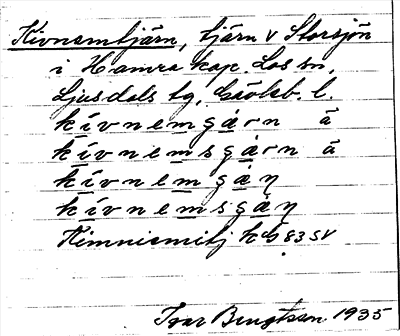 Kivnemtjärn, tjärn v Storsjön
i Hamra kap. Los sn,
Ljusdals tg, Gävleb. l.
kívnemgàrn ä
kívnemsgàrn ä
kívnemgàṇ
kívnemsgàṇ
Kimniemitj kb 83 SV
Ivar Bengtsson 1935